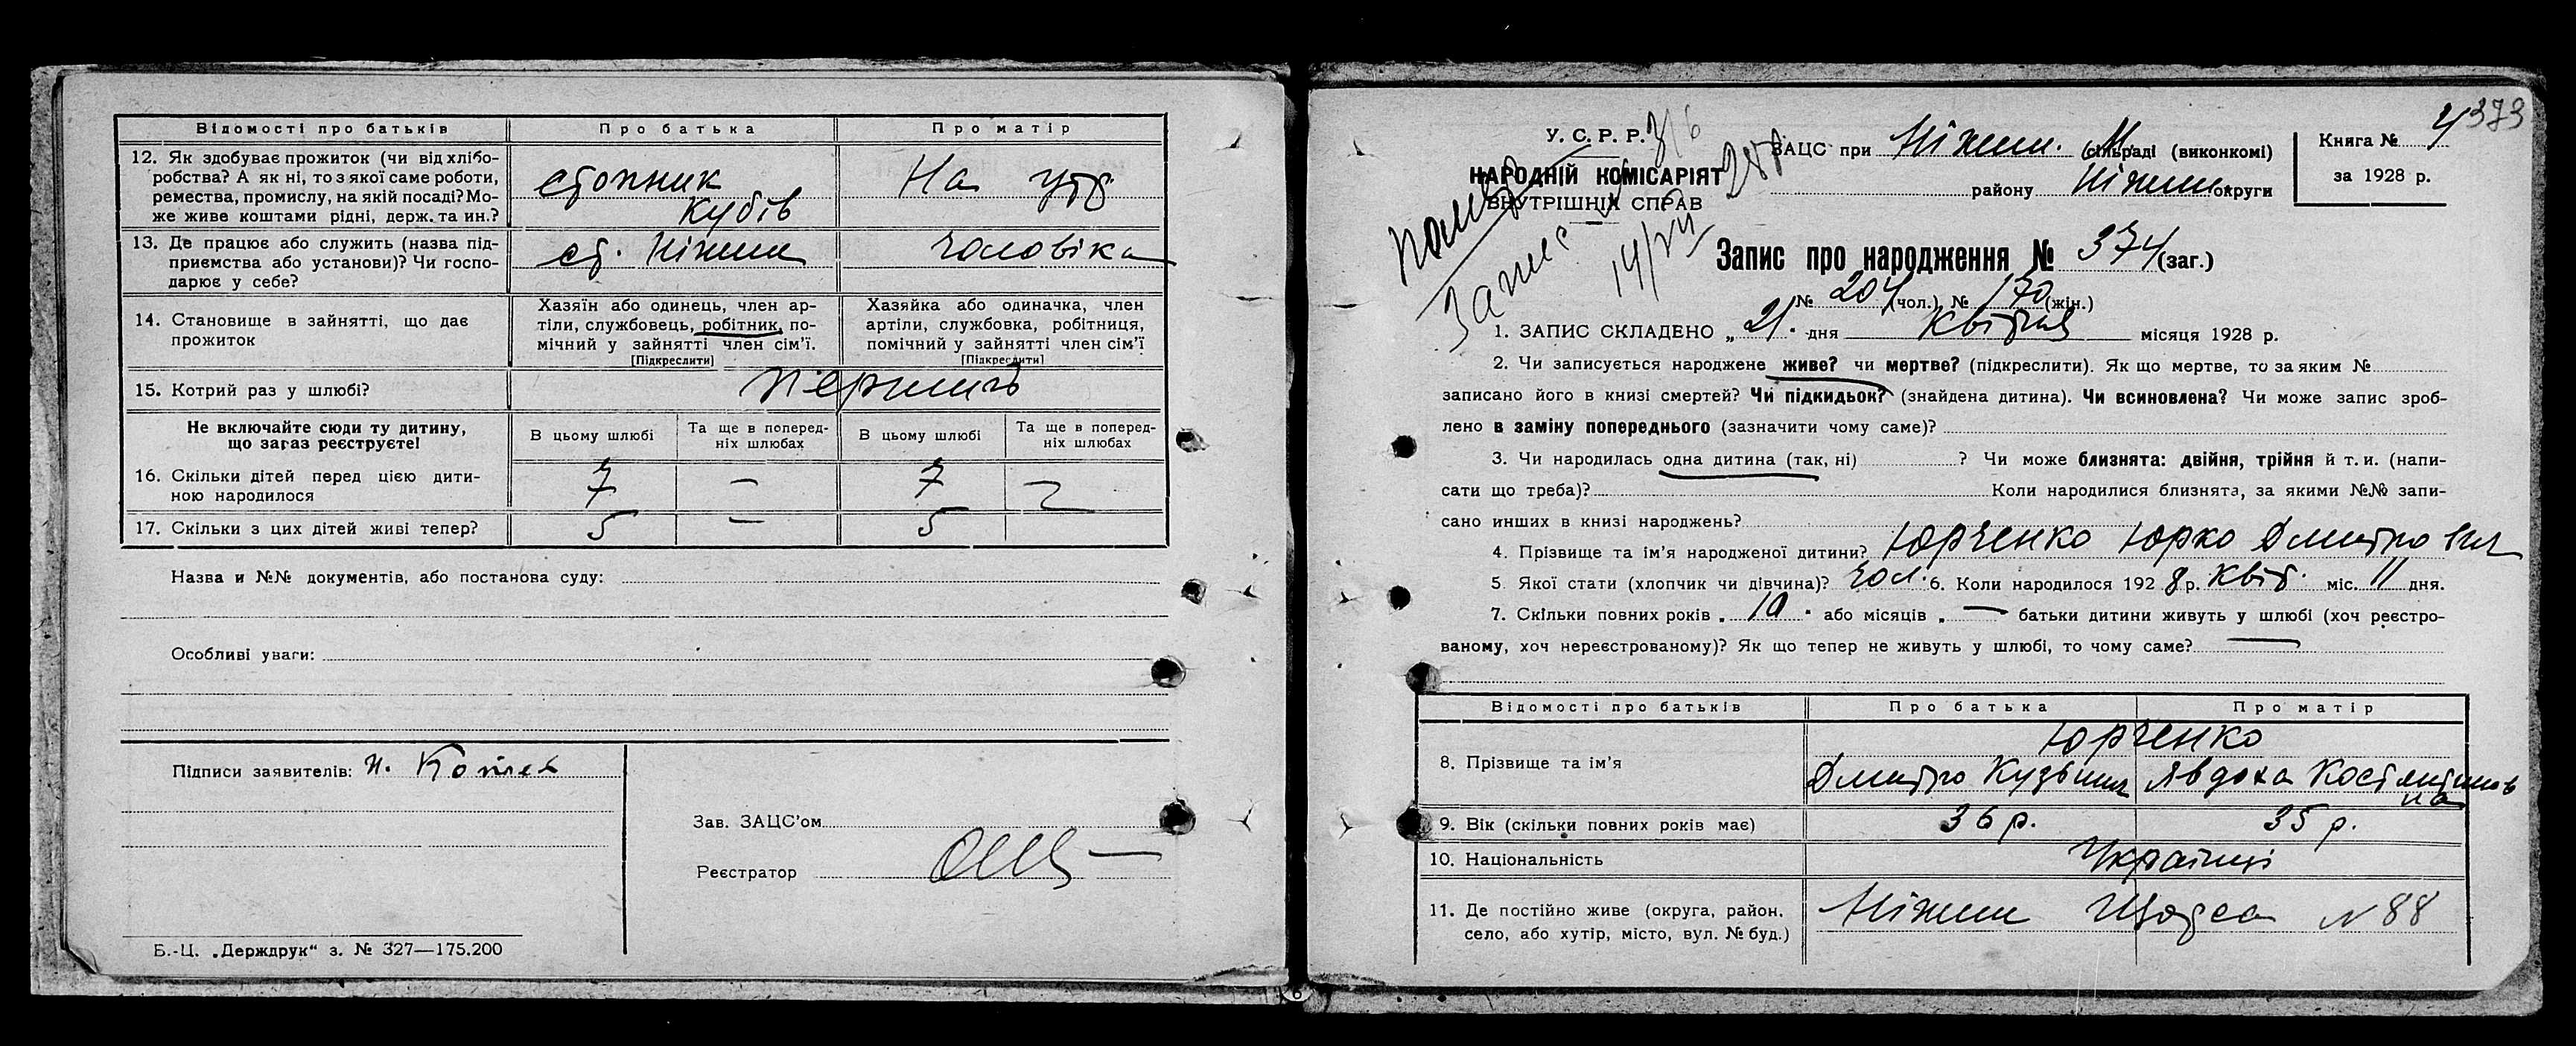 Відомості про батьків Про батька Про матір
12. Як здобуває прожиток (чи від хлібо-
робства? А як ні, то з якої саме роботи,
ремества, промислу, на якій посаді? Мо-
же живе коштами рідні, держ. та ин.?
кубів
На утр
13. Де працює або служить (назва під-
приємства або установи)? Чи госпо-
дарює у себе?
ст. Ніжин
чоловіка
14. Становище в зайнятті, що дає
прожиток
Хазяїн або одинець, член ар-
тіли, службовець, робітник, по-
мічний у зайнятті член сім'ї.
[Підкреслити]
Хазяйка або одиначка, член
артіли, службовка, робітниця,
помічний у зайнятті член сім'ї
[Підкреслити]
15. Котрий раз у шлюбі?
Не включайте сюди ту дитину,
що загаз реєструєте!
В цьому шлюбі
Та ще в поперед-
ніх шлюбах
В цьому шлюбі
Та ще в поперед-
ніх шлюбах
16. Скільки дітей перед цією дити-
ною народилося
7 — 7
17. Скільки з цих дітей живі тепер? 5 — 5
Назва и №№ документів, або постанова суду:
Особливі уваги:
Підписи заявителів:
Зав. ЗАЦС'ом
Реєстратор
Б.-Ц. „Держдрук“ з. № 327—175.200
373
У. С. Р. Р.
НАРОДНІЙ КОМІСАРІЯТ
ВНУТРІШНІХ СПРАВ
ЗАЦС при Ніжин. М. (сільраді (виконкомі)
району Ніжин. округи
Книга № 4
за 1928 р.
Запис про народження № 374 (заг.)
№ 204 (чол.) № 170 (жін.)
1. ЗАПИС СКЛАДЕНО „ 21 " дня Квітня місяця 1928 р.
2. Чи записується народжене живе? чи мертве? (підкреслити). Як що мертве, то за яким №
записано його в книзі смертей? Чи підкидьок? (знайдена дитина). Чи всиновлена? Чи може запис зроб-
лено в заміну попереднього (зазначити чому саме)?
3. Чи народилась одна дитина (так, ні) ? Чи може близнята: двійня, трійня й т. и. (напи-
сати що треба)? Коли народилися близнята, за якими №№ запи-
сано инших в книзі народжень?
4. Прізвище та ім'я народженої дитини? Юрченко Юрко Дмитрович
5 Якої стати (хлопчик чи дівчина)? чол. 6. Коли народилося 192 8 р. Квіт. міс. 11 дня.
7. Скільки повних років „ 10 " або місяців „ — " батьки дитини живуть у шлюбі (хоч реєстро-
ваному, хоч нереєстрованому)? Як що тепер не живуть у шлюбі, то чому саме? —
Відомості про батьків Про батька Про матір
8. Прізвище та ім'я
Юрченко
Дмитро Кузьмич Явдоха Костянтинов
на
9. Вік (скільки повних років має) 36 р. 35 р.
10. Національність Українці
11. Де постійно живе (округа, район,
село, або хутір, місто, вул. № буд.)
Ніжин Щорса N 88